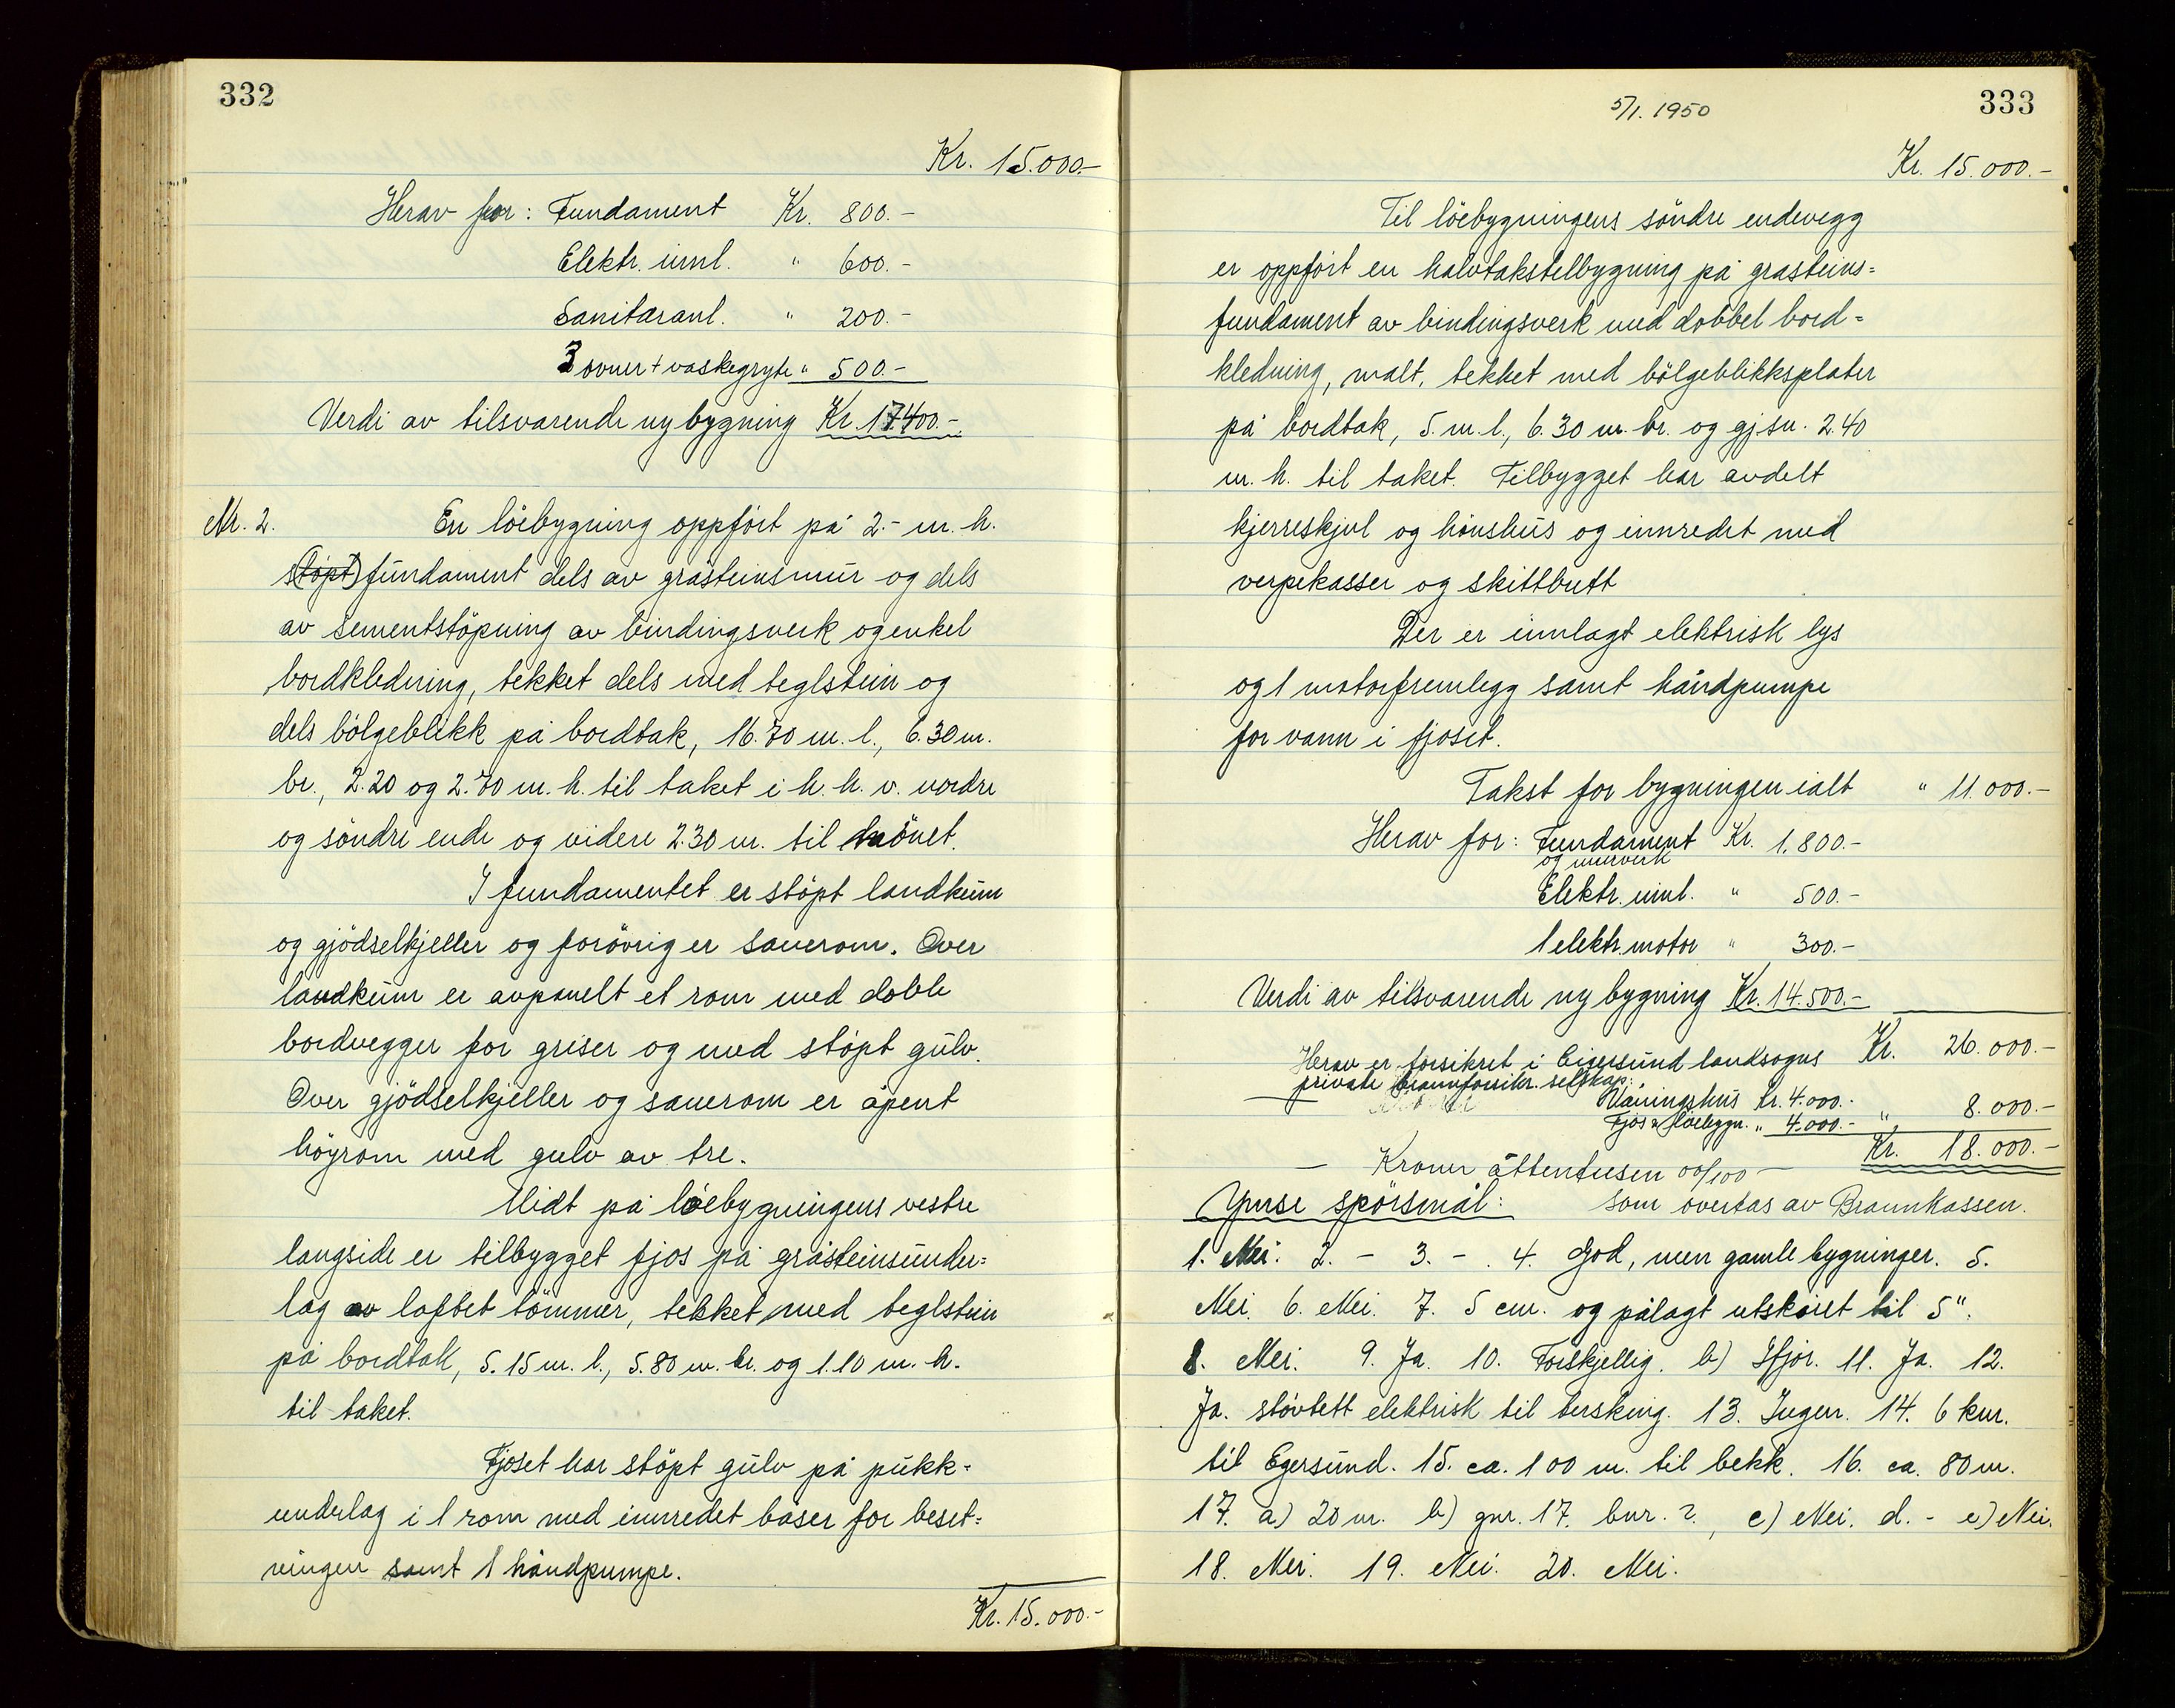 332
Kr. 15.000.-
Herav for: Fundament Kr. 800.-
Elektr. innl. " 600.-
Sanitæranl. " 200.-
3 ovner + vaskegryte " 500.-
Verdi av tilsvarende ny bygning Kr. 17.400.-
Nr. 2. En löebygning oppfört på 2.- m. h.
støpt) fundament dels av gråsteinsmur og dels
av sementstöpning av bindingsverk og enkel
bordkledning, tekket dels med teglstein og
dels bölgeblikk på bordtak, 16.70 m. l., 6.30 m.
br., 2.20 og 2.70 m. h. til taket i h. h. v. nordre
og söndre ende og videre 2.30 m. til mönet.
I fundamentet er stöpt landkum
og gjödselkjeller og forövrig er sauerom. Over
landkum er avpanelt et rom med doble
bordvegger for griser og med stöpt gulv.
Over gjödselkjeller og sauerom er åpent
höyrom med gulv av tre.
Midt på löebygningens vestre
langside er tilbygget fjos på gråsteinsunder=
lag av laftet tömmer, tekket med teglstein
på bordtak, 5.15 m. l., 5.80 m. br. og 1.10 m. h.
til taket.
Fjöset har stöpt gulv på pukk=
underlag i 1 rom med innredet båser for beset=
ningen samt 1 håndpumpe.
Kr. 15.000.-
5/1. 1950
333
Kr. 15.000.-
Til löebygningens söndre endevegg
er oppfört en halvtakstilbygning på gråsteins=
fundament av bindingsverk med dobbel bord=
kledning, malt, tekket med bölgeblikksplater
på bordtak, 5. m. l., 6.30 m. br. og gj.sn. 2.40
m. h. til taket. Tilbygget har avdelt
kjerreskjul og hönshus og innredet med
verpekasser og skittbrett
Der er innlagt elektrisk lys
og 1 motorfremlegg samt håndpumpe
for vann i fjoset.
Takst for bygningen ialt " 11.000.-
Herav for: Fundament Kr. 1.800.-
og murverk
Elektr. innl. " 500.-
1 elektr. motor " 300.-
Verdi av tilsvarende ny bygning Kr. 14.500.-
Kr. 26.000.-
Herav er forsikret i Eigersund landsogns
private brannforsikr. selskap:
Våningshus Kr. 4.000.-
Fjös & löebygn. " 4.000.- " 8.000.-
Kr. 18.000.-
- Kroner åttentusen 00/100 -
Ymse spörsmål: som overtas av Brannkassen.
1. Nei. 2. - 3. - 4. God, men gamle bygninger. 5.
Nei. 6. Nei. 7. 5 cm. og pålagt utskåret til 5".
8. Nei. 9. Ja. 10. Forskjellig. b) Ifjor. 11. Ja. 12.
Ja. stövtett elektrisk til tersking. 13. Ingen. 14. 6 km.
til Egersund. 15. ca. 100 m. til bekk. 16. ca. 80 m.
17. a) 20 m. b) gnr. 17. bnr. 2., c) Nei. d. - e) Nei.
18. Nei. 19. Nei. 20. Nei.